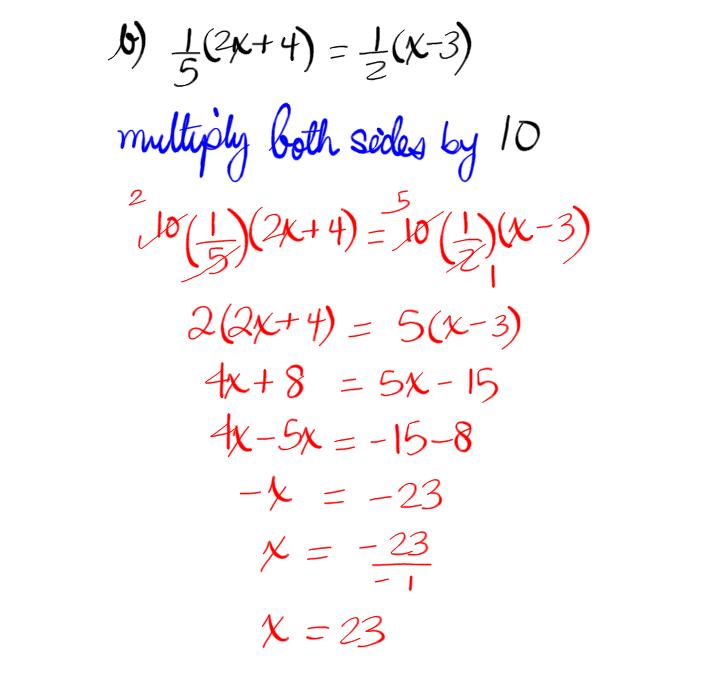 b) 1/5(2x+4) = 1/2(x-3)
multiply both sides by 10
2 10(1/5)(2x+4) = 5 10(1/2)(x-3)
1
2(2x+4) = 5(x-3)
4x+8 = 5x-15
4x-5x = -15-8
-x = -23
x = -23/-1
x = 23